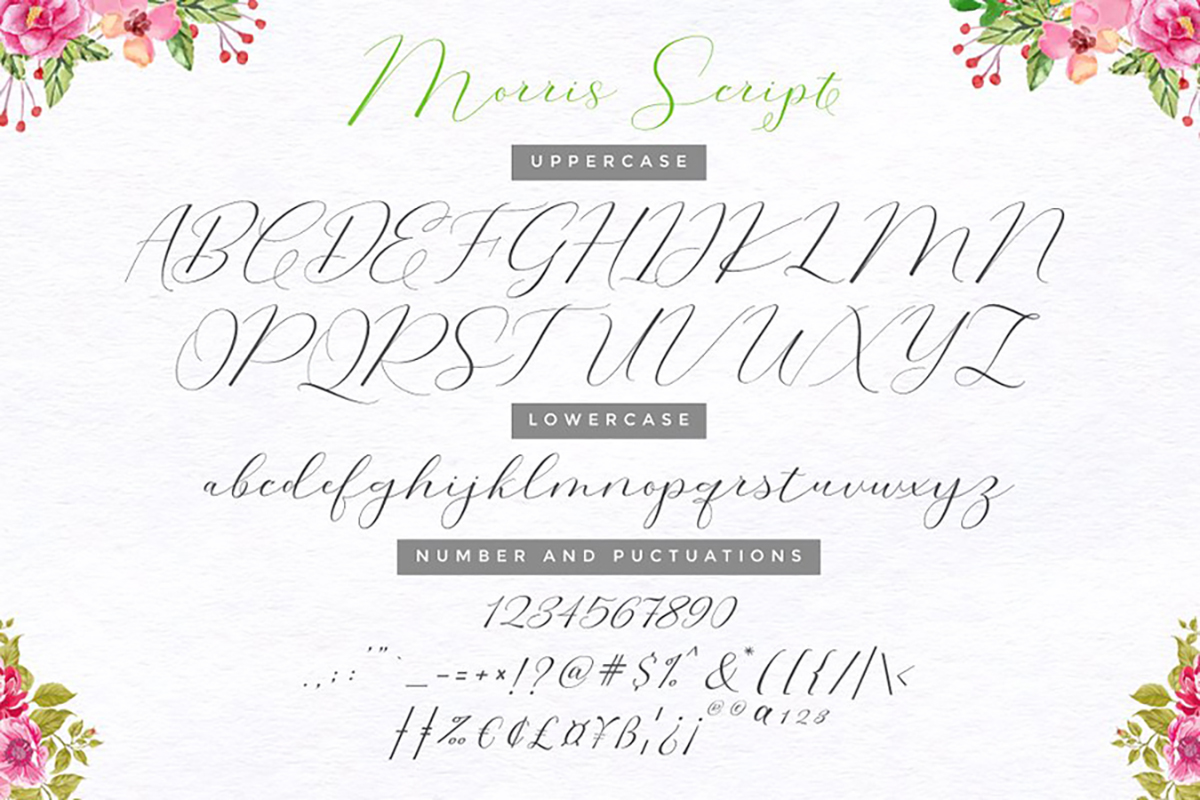 Morris Script
UPPERCASE
ABCDEFGHIJKLMN
OPQRSTUVWXYZ
LOWERCASE
abcdefghijklmnopqrstuvwxyz
NUMBER AND PUCTUATIONS
1234567890
. , ; : ' " ` _ - = + × ! ? @ # $ % ^ & * ( [ { / | \ <
† ‡ ‰ € ¢ £ ¤ ¥ ß ¦ ¿ ¡ ® © a 1 2 3